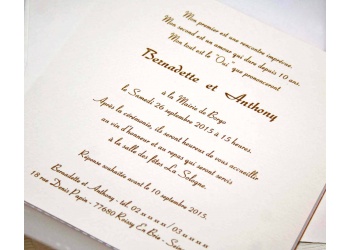 Mon premier est une rencontre imprévue.
Mon second est un amour qui dure depuis 10 ans.
Mon tout est le "Oui" que prononceront
Bernadette et Anthony
à la Mairie de Borgo
le Samedi 26 septembre 2015 à 15 heures.
Après la cérémonie, ils seront heureux de vous accueillir
au vin d'honneur et au repas qui seront servis
à la salle des fêtes La Sologne.
Réponse souhaitée avant le 10 septembre 2015.
Bernadette et Anthony - tél. 02 xx xx xx / 03 xx xx x
18 rue Denis Papin - 77680 Roissy En Brie -